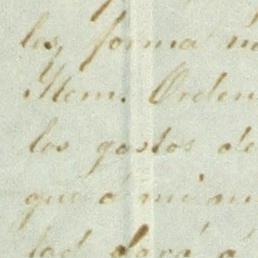 les, forma
Item. Orden
los gastos de
que a mi
dará á